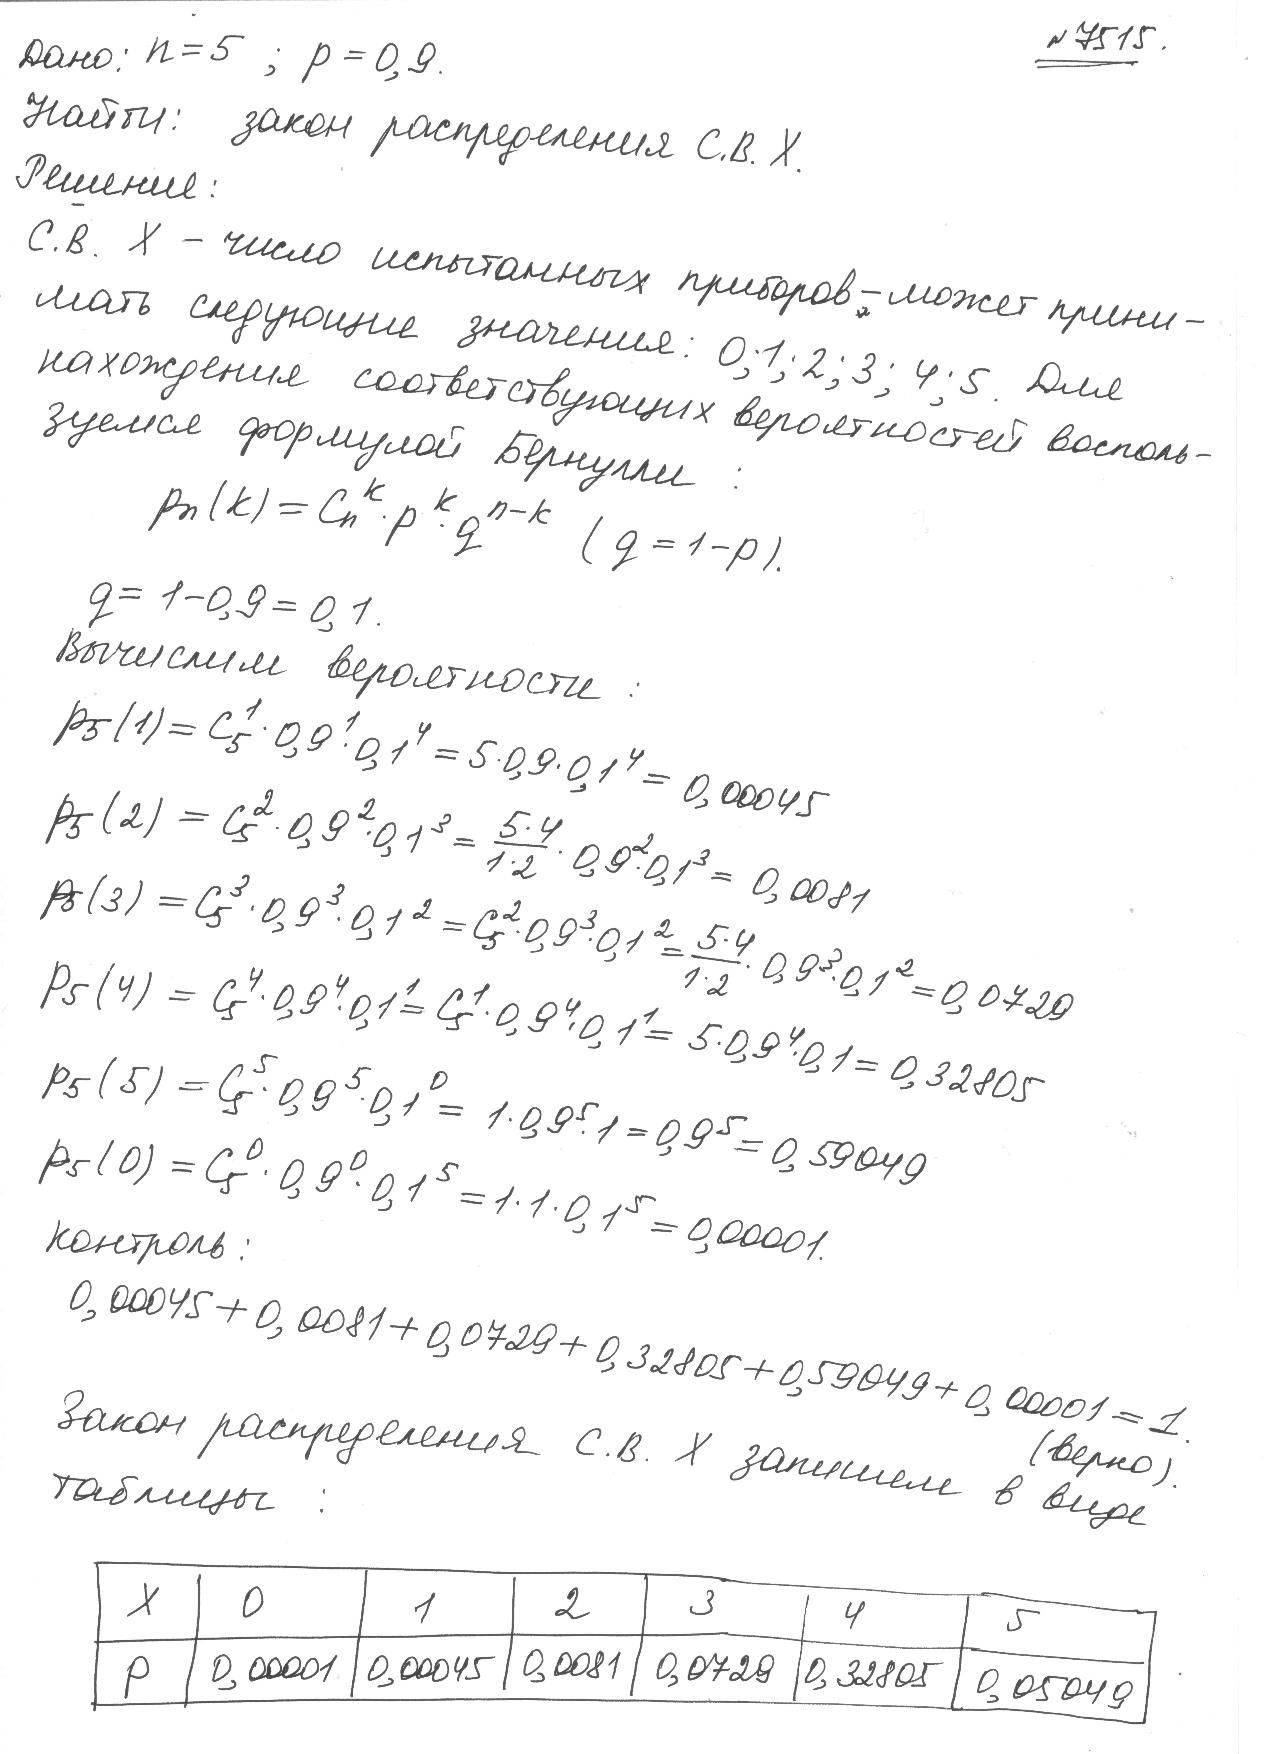 №7515.
Дано: n=5 ; p=0,9.
Найти: закон распределения С.В. X.
Решение:
С.В. X – число испытанных приборов – может прини-
мать следующие значения: 0; 1; 2; 3; 4; 5. Для
нахождения соответствующих вероятностей восполь-
зуемся формулой Бернулли :
Pn(k) = Cn^k · p^k · q^n-k ( q = 1-p).
q = 1-0,9 = 0,1.
Вычислим вероятности :
P5(1) = C5^1 · 0,9^1 · 0,1^4 = 5·0,9·0,1^4 = 0,00045
P5(2) = C5^2 · 0,9^2 · 0,1^3 = 5·4/1·2 · 0,9^2 · 0,1^3 = 0,0081
P5(3) = C5^3 · 0,9^3 · 0,1^2 = C5^2 · 0,9^3 · 0,1^2 = 5·4/1·2 · 0,9^3 · 0,1^2 = 0,0729
P5(4) = C5^4 · 0,9^4 · 0,1^1 = C5^1 · 0,9^4 · 0,1^1 = 5·0,9^4 · 0,1 = 0,32805
P5(5) = C5^5 · 0,9^5 · 0,1^0 = 1·0,9^5 · 1 = 0,9^5 = 0,59049
P5(0) = C5^0 · 0,9^0 · 0,1^5 = 1·1·0,1^5 = 0,00001.
Контроль :
0,00045 + 0,0081 + 0,0729 + 0,32805 + 0,59049 + 0,00001 = 1.
(верно).
Закон распределения С.В. X запишем в виде
таблицы :
X 0 1 2 3 4 5
P 0,00001 0,00045 0,0081 0,0729 0,32805 0,05049